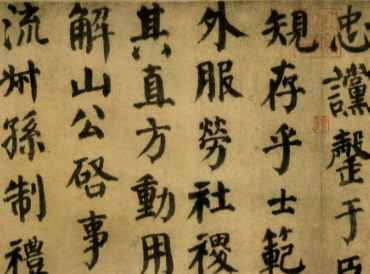 忠讜罄于臣
規存乎士範
外服勞社稷
其直方動用
解山公啓事
流叔孫制禮